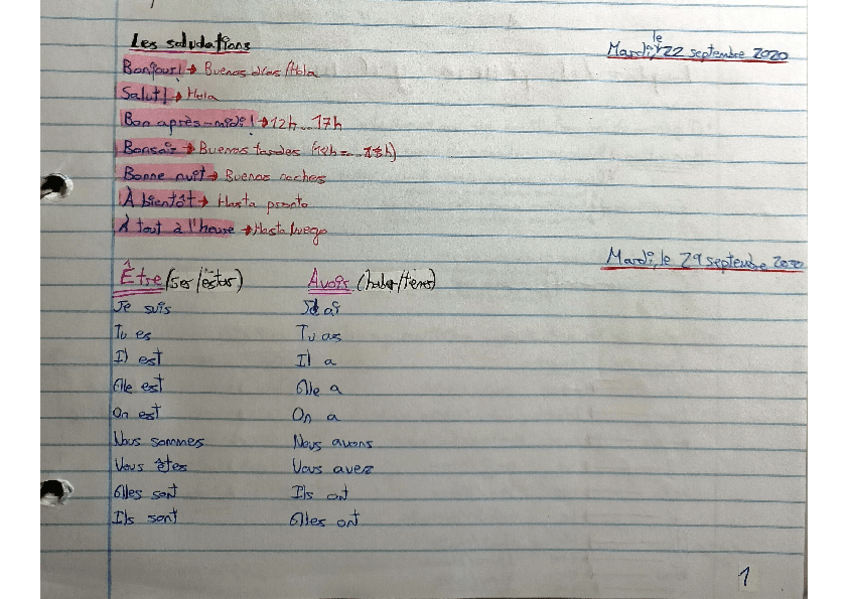 Les saludations
Mardi, le 22 septembre 2020
Bonjour! → Buenos días/Hola
Salut! → Hola
Bon après-midi! → 12h...17h
Bonsoir → Buenas tardes
Bonne nuit → Buenas noches
À bientôt → Hasta pronto
À tout à l'heure → Hasta luego
Mardi, le 29 septembre 2020
Être (ser/estar) Avoir (haber/tener)
Je suis J'ai
Tu es Tu as
Il est Il a
Elle est Elle a
On est On a
Nous sommes Nous avons
Vous êtes Vous avez
Elles sont Ils ont
Ils sont Elles ont
1